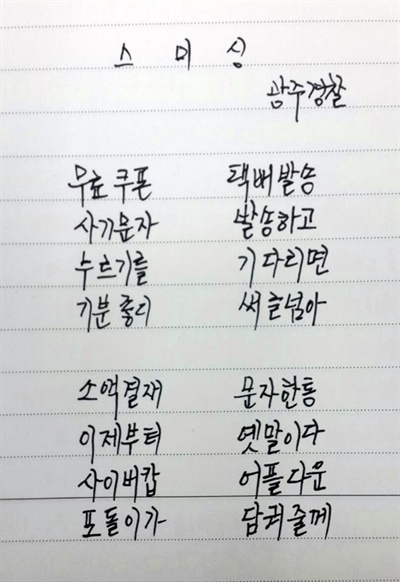 스 미 싱
광주경찰
무료쿠폰 택배발송
사기문자 발송하고
누르기를 기다리면
기분좋니 써글넘아
소액결재 문자한통
이제부터 옛말이다
사이버캅 어플다운
포돌이가 담궈줄께